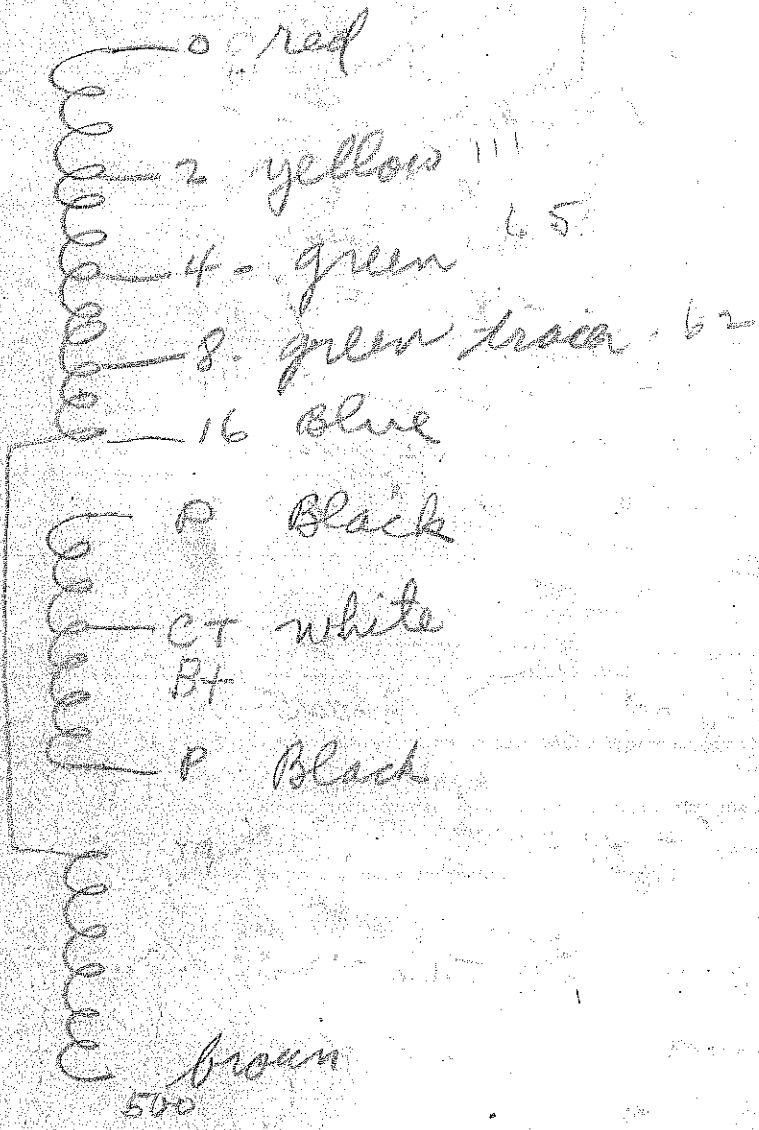 0 red
2 yellow 111
4 - green 65
8 - green tracer - 62
16 Blue
P Black
CT white
B+
P Black
brown
500